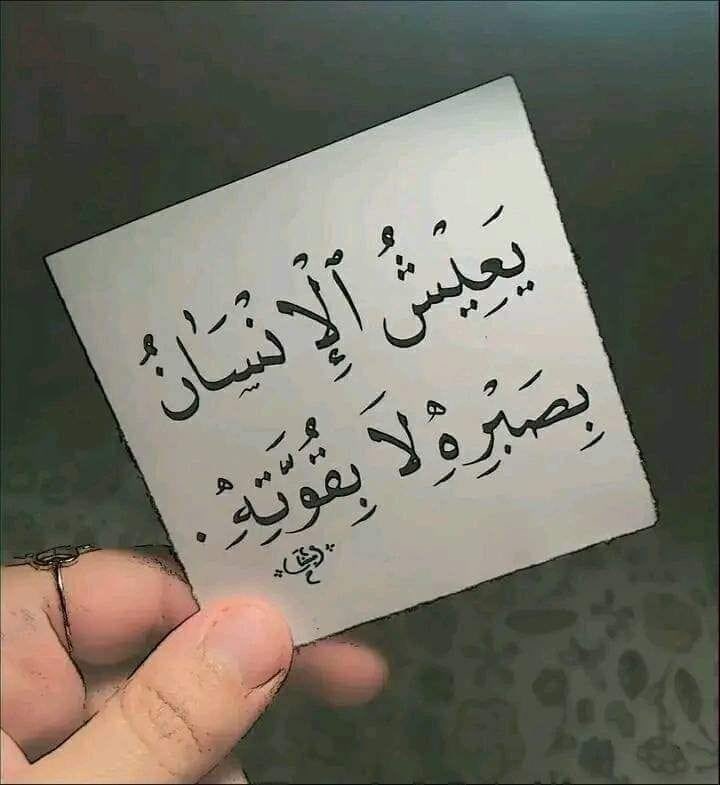 يَعِيْشُ ٱلْإِنْسَانُ
بِصَبْرِهِ لَا بِقُوَّتِهِ.